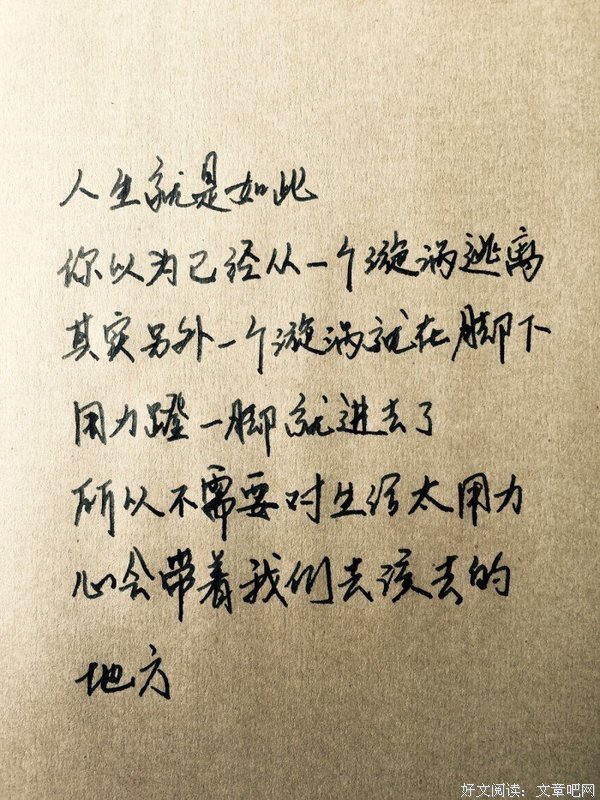 人生就是如此
你以为已经从一个漩涡逃离
其实另外一个漩涡就在脚下
用力蹬一脚就进去了
所以不需要对生活太用力
心会带着我们去该去的
地方
好文阅读：文章吧网